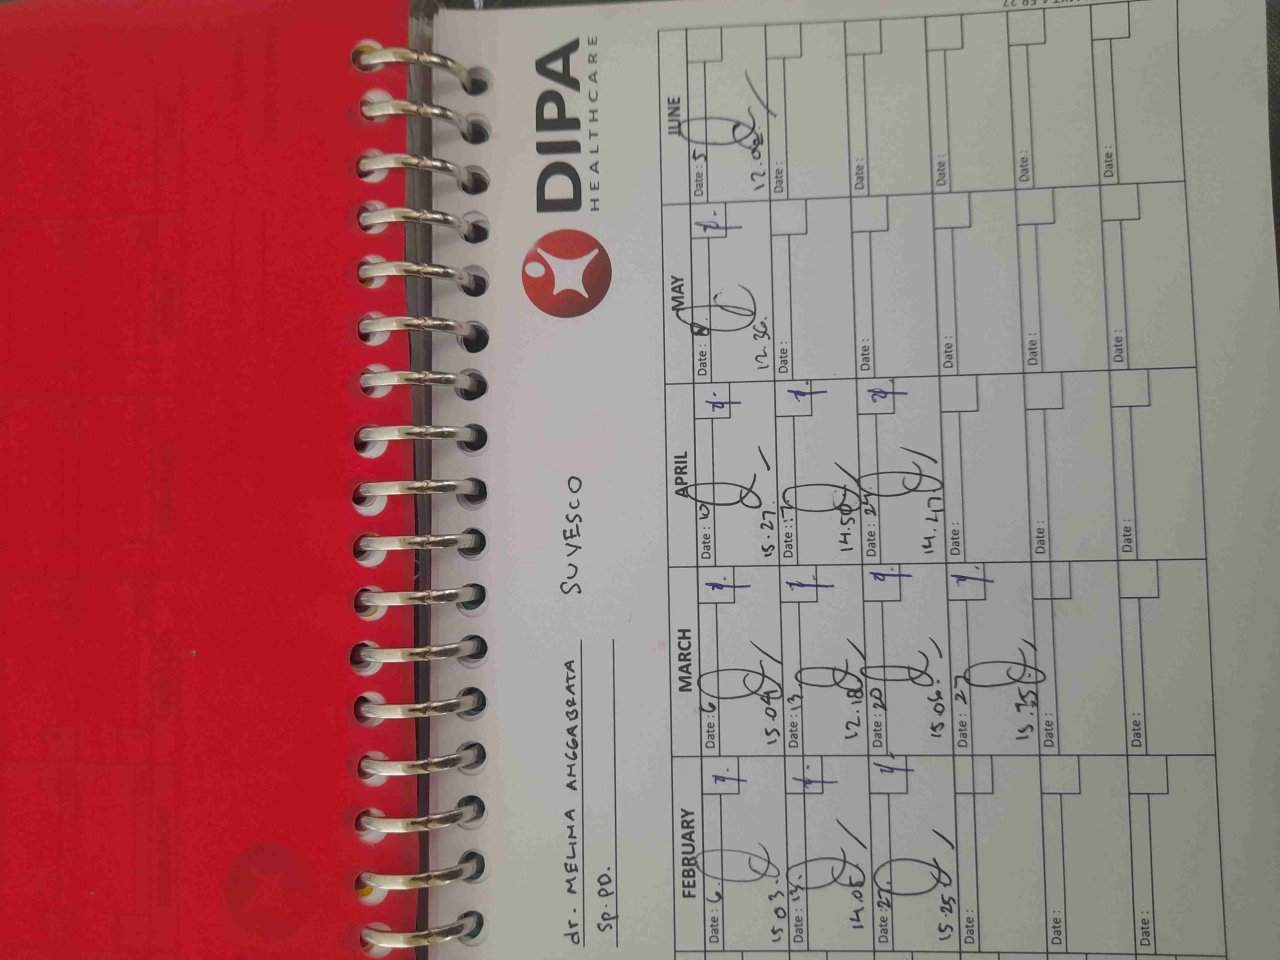 DIPA
HEALTHCARE
dr. MELINA ANGGABRATA SUVESCO
Sp.PD.
FEBRUARY MARCH APRIL MAY JUNE
Date: 6 Date: 6 Date: 10 Date: Date: 5
15.03 15.04 15.27. 12.36. 12.02
Date: 13 Date: 13 Date: 17 Date: Date:
14.05 12.18 14.50
Date: 27 Date: 20 Date: 24 Date: Date:
15.25 15.06 14.47
Date: Date: 27 Date: Date: Date:
15.35
Date: Date: Date: Date: Date:
Date: Date: Date: Date: Date: